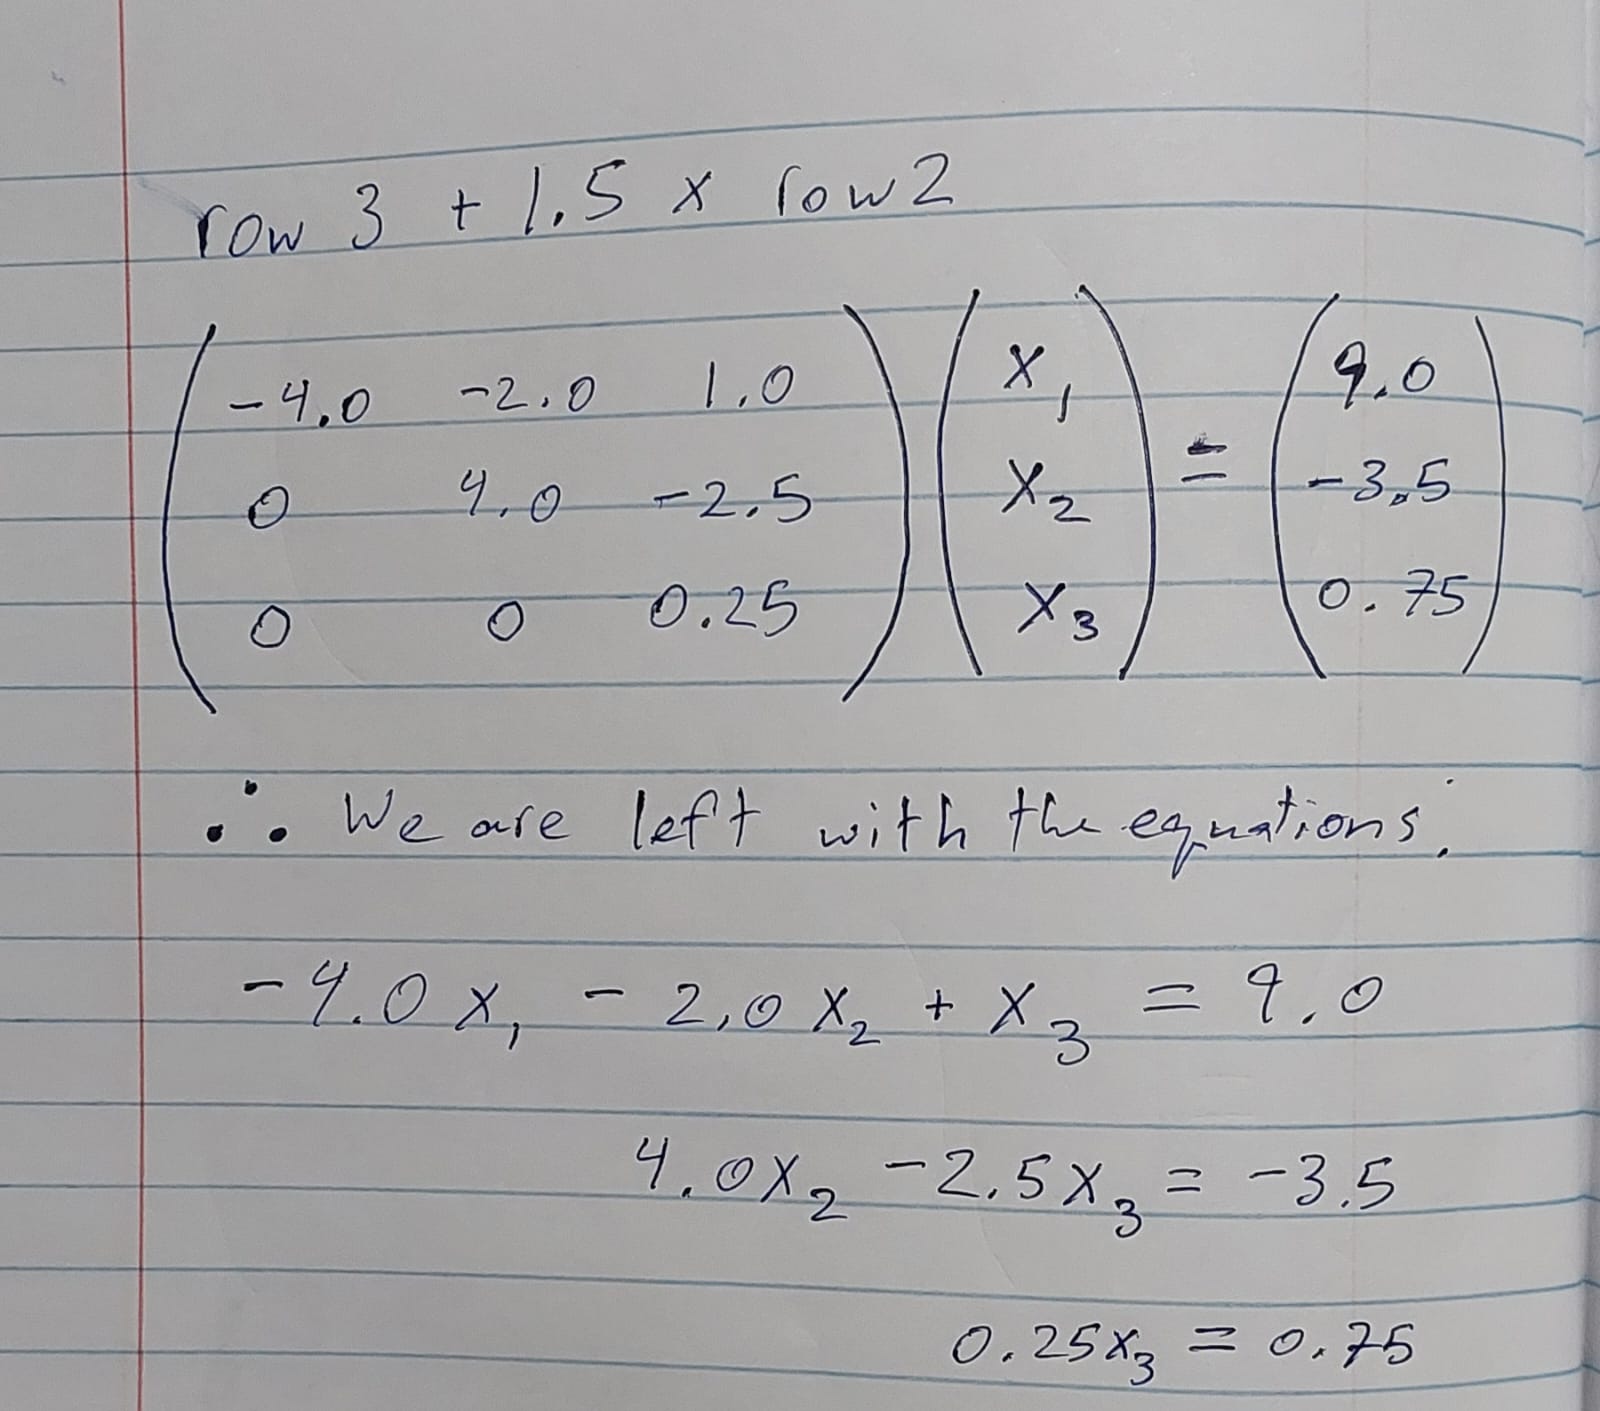 row 3 + 1.5 x row 2
( -4.0 -2.0 1.0 ) ( x₁ ) = ( 9.0 )
( 0 4.0 -2.5 ) ( x₂ ) ( -3.5 )
( 0 0 0.25 ) ( x₃ ) ( 0.75 )
∴ We are left with the equations:
-4.0 x₁ - 2.0 x₂ + x₃ = 9.0
4.0x₂ -2.5x₃ = -3.5
0.25x₃ = 0.75